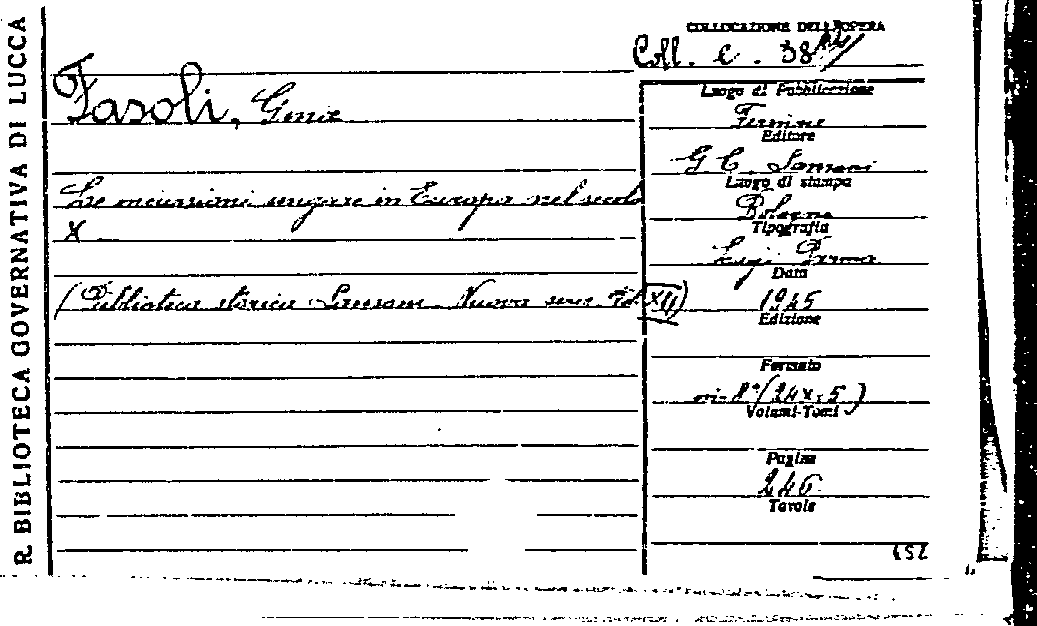 R. BIBLIOTECA GOVERNATIVA DI LUCCA
COLLOCAZIONE DELL'OPERA
Coll. C. 38
Fasoli, Gina
Le incursioni ungare in Europa nel secolo
X
(Biblioteca storica Sansoni Nuova serie Vol. XI)
Luogo di Pubblicazione
Firenze
Editore
G. C. Sansoni
Luogo di stampa
Bologna
Tipografia
Luigi Parma
Data
1945
Edizione
Formato
in-8°
Volumi-Tomi
Pagine
246
Tavole